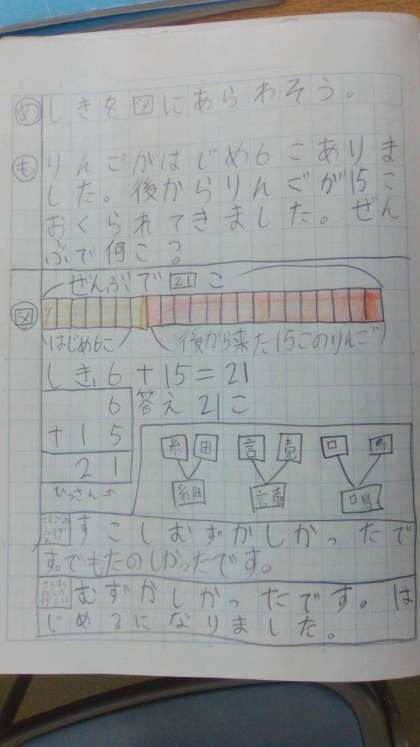 め しきを図にあらわそう。
も りんごがはじめ6こありま
した。後からりんごが15こ
おくられてきました。ぜん
ぶで何こ？
ぜんぶで21こ
図
はじめ6こ 後から来た15このりんご
しき 6+15=21
6 答え 21こ
+15
21
ひっさん
糸 田 言 売 口 鳥
細 読 鳴
すこしむずかしかったで
す。でもたのしかったです。
むずかしかったです。は
じめるになりました。